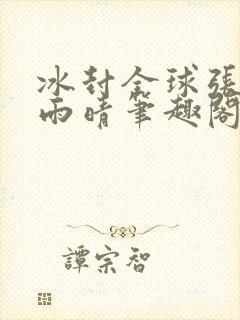 冰封全球張
雨晴筆趣閣
譚宗智